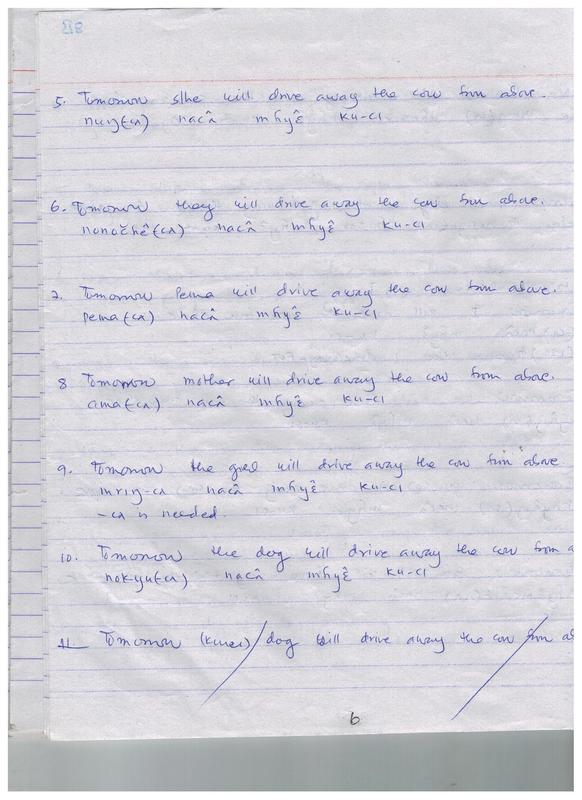 5. Tomorrow s/he will drive away the cow from above.
nuŋ(-cʌ) nacʌ̂ mɦyɛ̂ ku-ci
6. Tomorrow they will drive away the cow from above.
nunožhê(-cʌ) nacʌ̂ mɦyɛ̂ ku-ci
7. Tomorrow Pema will drive away the cow from above.
pema(-cʌ) nacʌ̂ mɦyɛ̂ ku-ci
8 Tomorrow mother will drive away the cow from above.
ama(-cʌ) nacʌ̂ mɦyɛ̂ ku-ci
9. Tomorrow the will drive away the cow from above
mriŋ-cʌ nacʌ̂ mɦyɛ̂ ku-ci
-cʌ is needed.
10. Tomorrow the dog will drive away the cow from a
nokyu(-cʌ) nacʌ̂ mɦyɛ̂ ku-ci
11 Tomorrow dog will drive away the cow from ab
6